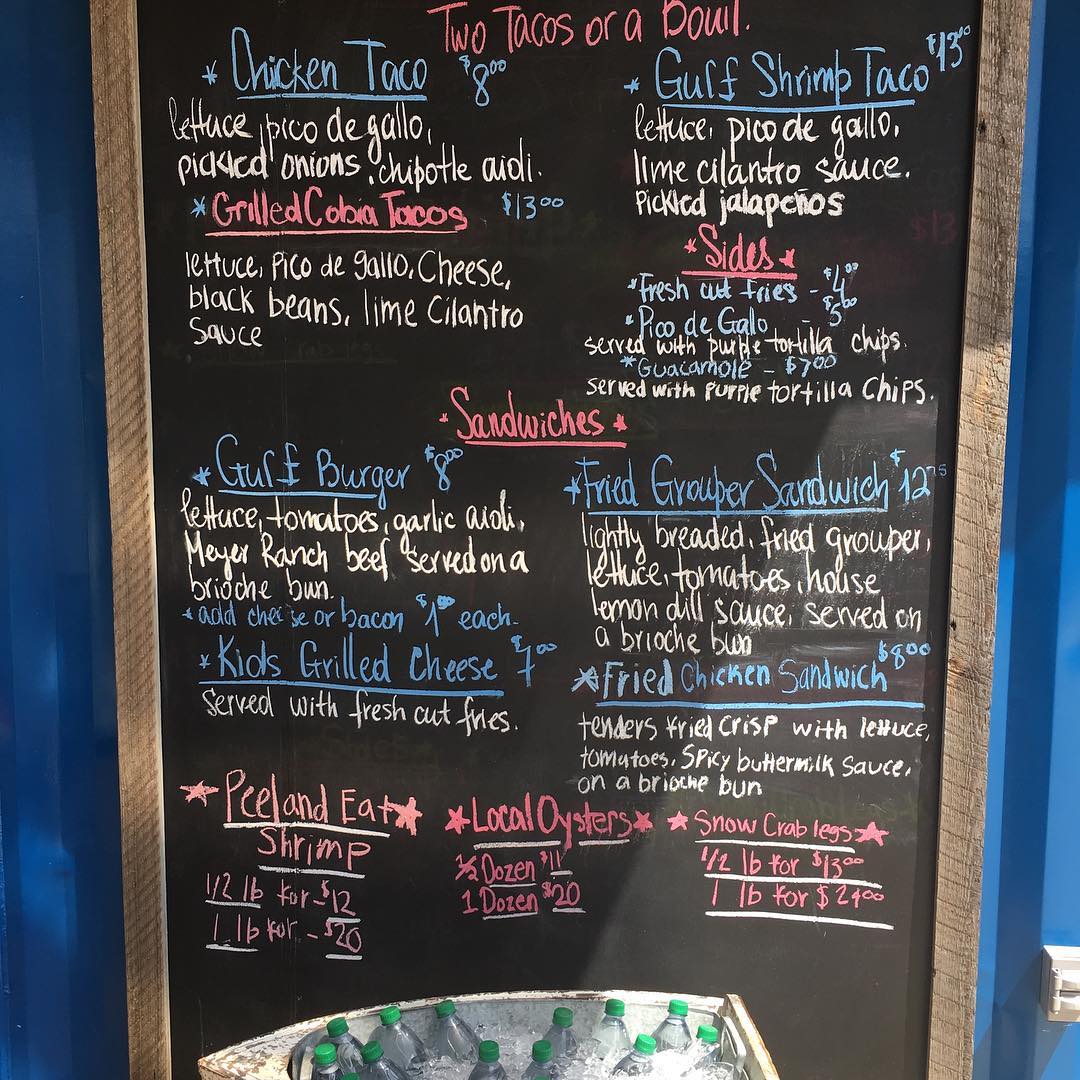 Two Tacos or a Bowl.
* Chicken Taco $8.00
lettuce, pico de gallo,
pickled onions, chipotle aioli.
* Grilled Cobia Tacos $13.00
lettuce, Pico de gallo, Cheese,
black beans, lime Cilantro
Sauce
* Gulf Shrimp Taco $13.00
lettuce, pico de gallo,
lime cilantro sauce.
Pickled jalapeños
* Sides *
* Fresh cut fries - $4.00
* Pico de Galo - $5.00
served with purple tortilla chips.
* Guacamole - $7.00
served with Purple tortilla Chips.
* Sandwiches *
* Gulf Burger $8.00
lettuce, tomatoes, garlic aioli,
Meyer Ranch beef served on a
brioche bun.
* add cheese or bacon $1.00 each-
* Kids Grilled Cheese $7.00
Served with fresh cut fries.
* Fried Grouper Sandwich $12.75
lightly breaded, fried grouper,
lettuce, tomatoes, house
lemon dill sauce, served on
a brioche bun
* Fried Chicken Sandwich $8.00
tenders fried crisp with lettuce,
tomatoes, Spicy buttermilk Sauce,
on a brioche bun
* Peel and Eat *
Shrimp
1/2 lb for - $12
1 lb for - $20
* Local Oysters *
1/2 Dozen $11
1 Dozen $20
* Snow Crab legs *
1/2 lb for $13.00
1 lb for $24.00